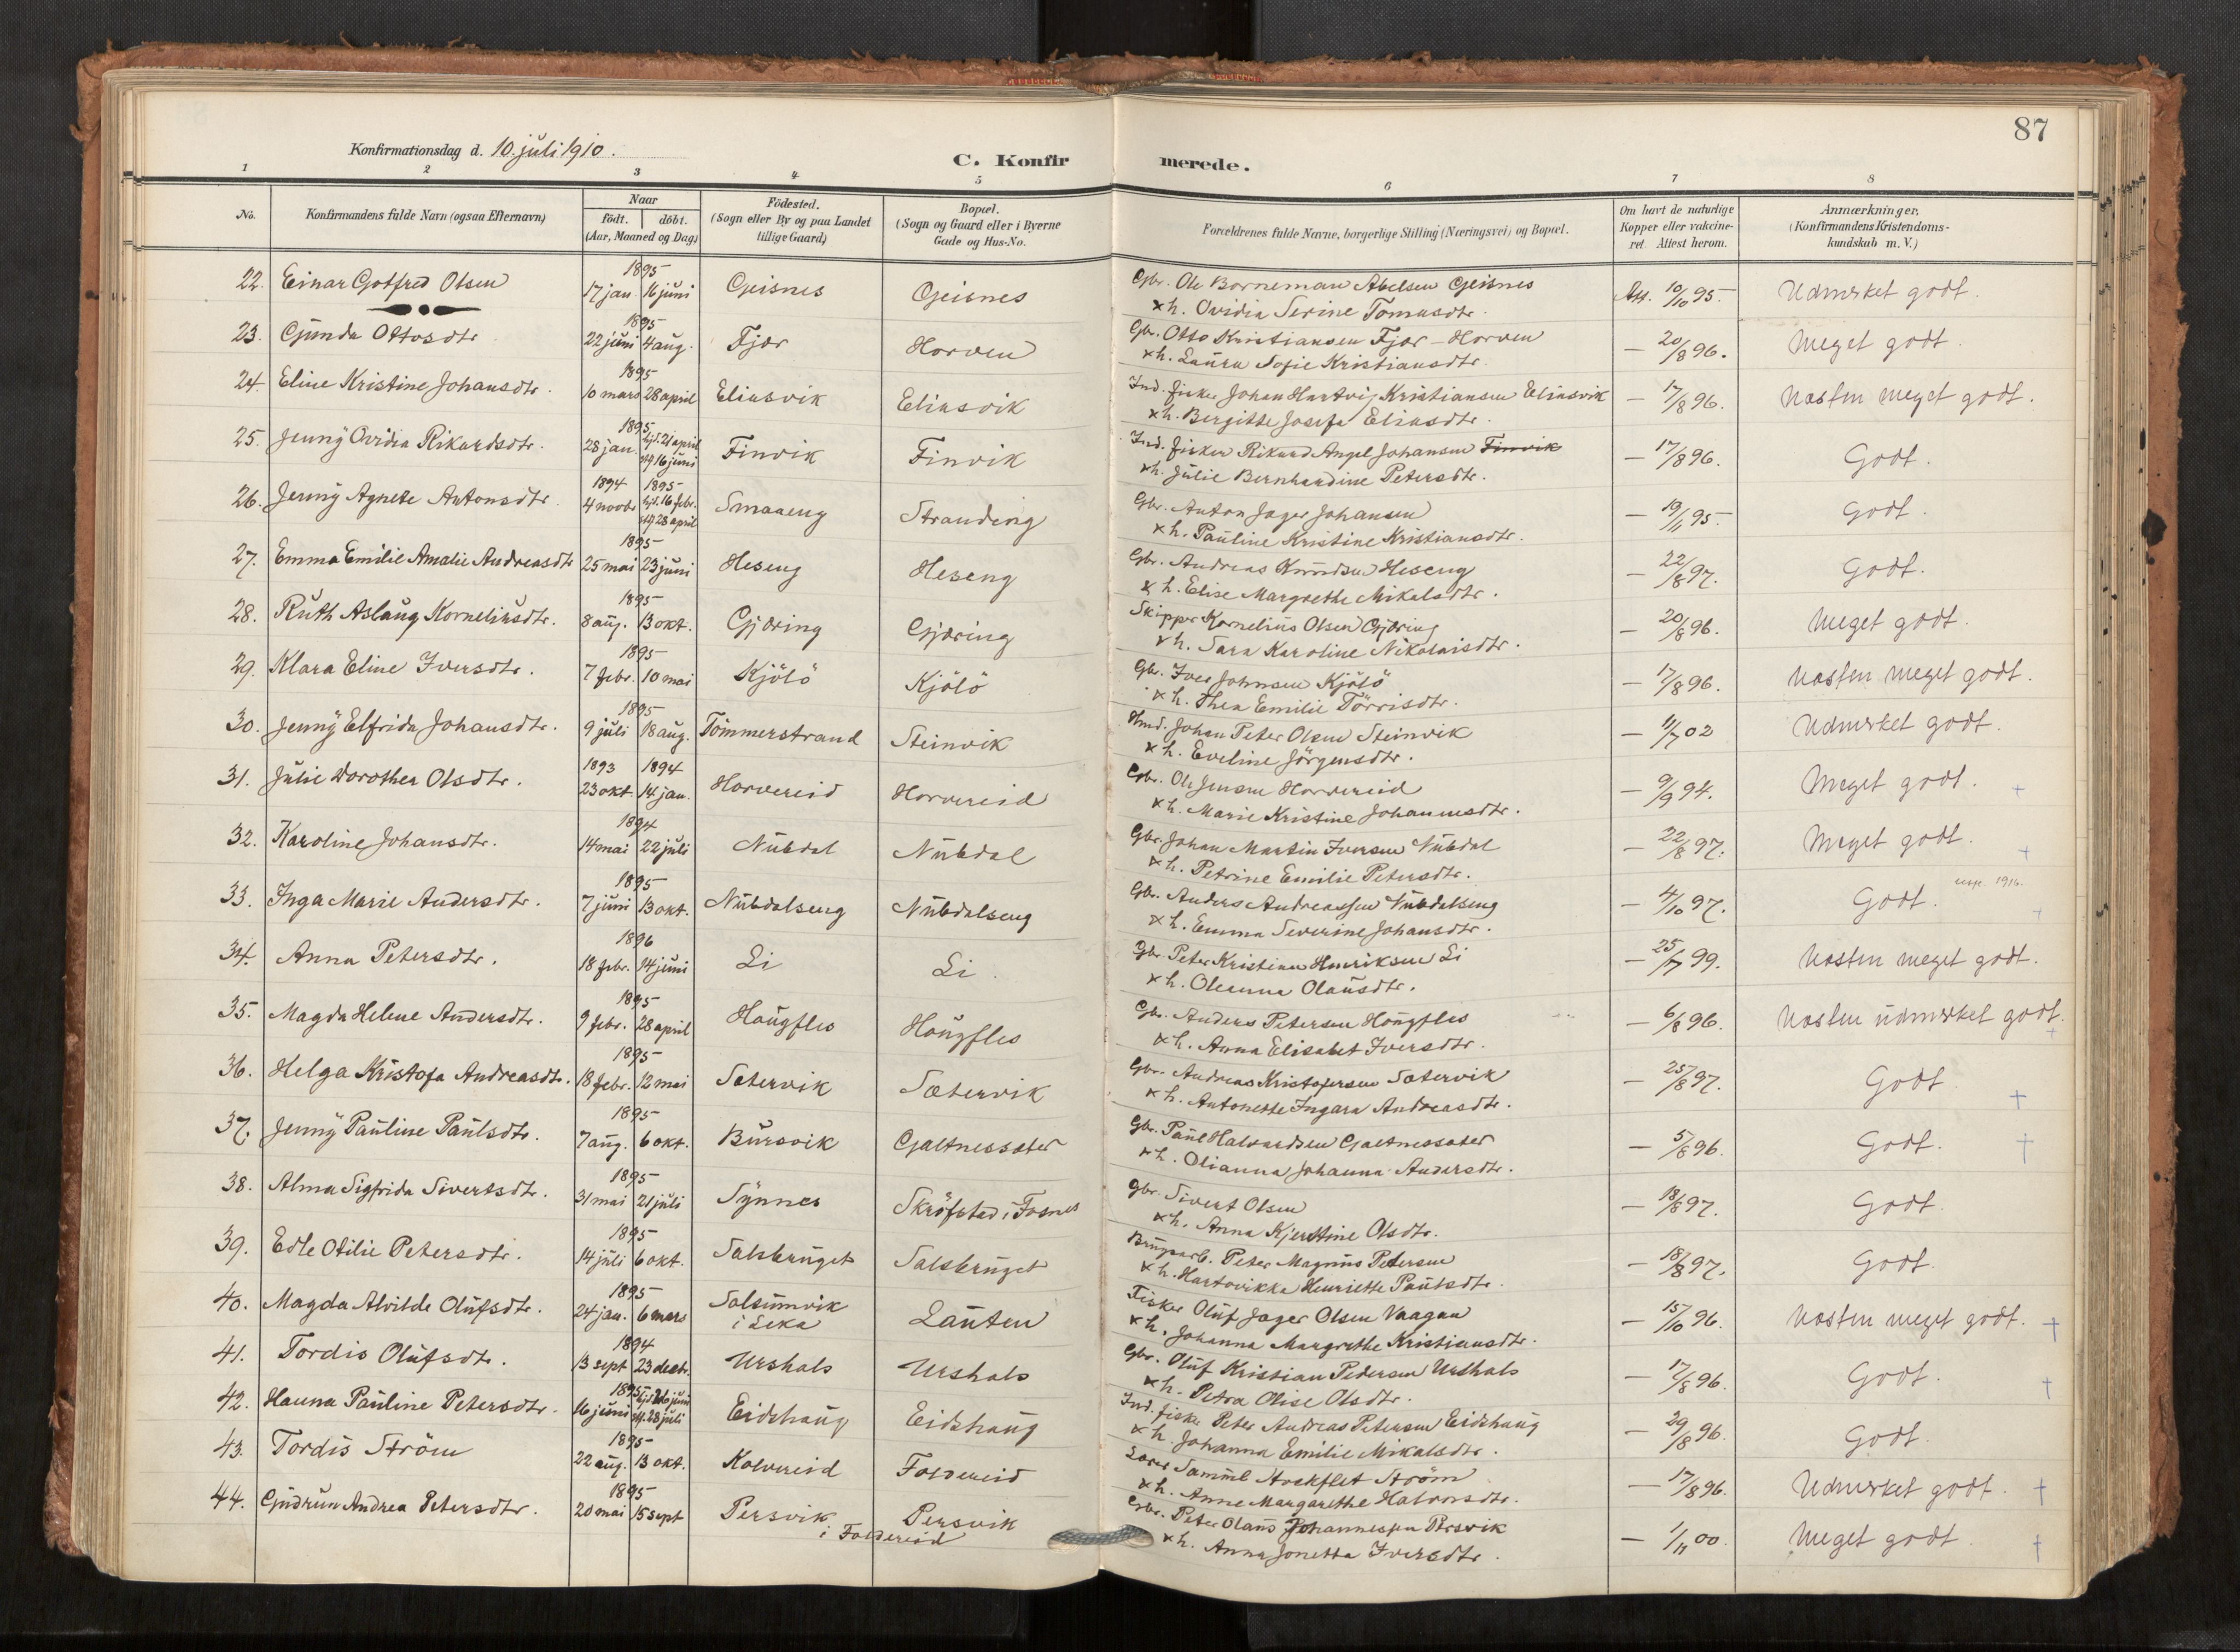 87
Konfirmationsdag d. 10. juli 1910.
C. Konfirmerede.
1 2 3 4 5 6 7 8
No.
Konfirmandens fulde Navn (ogsaa Efternavn)
Naar
født. døbt.
(Aar, Maaned og Dag)
Fødested.
(Sogn eller By og paa Landet
tillige Gaard)
Bopæl.
(Sogn og Gaard eller i Byerne
Gade og Hus-No.
Forældrenes fulde Navne, borgerlige Stilling (Næringsvei) og Bopæl.
Om havt de naturlige
Kopper eller vakcine-
ret Attest herom.
Anmærkninger.
(Konfirmandens Kristendoms-
kundskab m. V.)
22. Einar Gotfred Olsen 1895 17 jan. 16 juni Geisnes Geisnes Gbr. Ole Borneman Abelsen Geisnes
& h. Ovidia Serine Tomasdtr. Att. 10/10 95. Udmærket godt.
23. Gunda Ottosdtr 1895 22 juni 4 aug. Fjær Horven Gbr. Otto Kristiansen Fjær - Horven
& h. Laura Sofie Kristiansdtr. — 20/8 96. Meget godt.
24. Eline Kristine Johansdtr. 1895 10 mars 28 april Eliasvik Eliasvik Ind. fisker Johan Hartvig Kristiansen Eliasvik
& h. Bergitte Josefa Eliasdtr. — 17/8 96. Næsten meget godt.
25. Jenny Ovidia Rikardsdtr. 1895 28 jan. hjd. 21 april stf 16 juni Finvik Finvik Ind. fisker Rikard Angel Johansen Finvik
& h. Julie Bernhardine Petersdtr. — 17/8 96. Godt.
26. Jenny Agnete Antonsdtr 1894 1895 4 novbr hjd. 16 febr. stf 28 april Smaaeng Stranding Gbr. Anton Jager Johansen
& h. Pauline Kristine Kristiansdtr. — 19/11 95. Godt.
27. Emma Emilie Amalie Andreasdtr 1895 25 mai 23 juni Heseng Heseng Gbr. Andreas Knudsen Heseng
& h. Elise Margrethe Mikalsdtr. — 22/8 97. Godt.
28. Ruth Aslaug Korneliusdtr. 1895 8 aug. 13 okt. Gjæring Gjæring Skipper Kornelius Olsen Gjæring
& h. Sara Karoline Nikolaisdtr. — 20/8 96. Meget godt.
29. Klara Eline Iversdtr. 1895 7 febr. 10 mai Kjölö Kjölö Gbr. Iver Johnsen Kjölö
& h. Thea Emilie Törrisdtr. — 17/8 96. Næsten meget godt.
30. Jenny Elfrida Johansdtr. 1895 9 juli 18 aug. Tömmerstrand Steinvik Hmd. Johan Peter Olsen Steinvik
& h. Eveline Jörgensdtr. — 11/7 02 Udmærket godt.
31. Julie Dorothea Olsdtr. 1893 1894 23 okt. 14 jan. Horvereid Horvereid Gbr. Ole Jensen Horvereid
& h. Marie Kristine Johannesdtr. — 9/9 94. Meget godt. +
32. Karoline Johansdtr. 1894 14 mai 22 juli Nubdal Nubdal Gbr. Johan Martin Iversen Nubdal
& h. Petrine Emilie Petersdtr. — 22/8 97. Meget godt. +
33. Inga Marie Andersdtr. 1895 7 juni 13 okt. Nubdalseng Nubdalseng Gbr. Anders Andreassen Nubdalseng
& h. Emma Severine Johansdtr. — 4/10 97. Godt. 1916. +
34. Anna Petersdtr. 1896 18 febr. 14 juni Li Li. Gbr. Peter Kristian Henriksen Li
& h. Oleanna Olausdtr. — 25/7 99. Næsten meget godt.
35. Magda Helene Andersdtr. 1895 9 febr. 28 april Haugfles Haugfles Gbr. Anders Petersen Haugfles
& h. Anna Elisabet Iversdtr. — 6/8 96. Næsten udmærket godt. +
36. Helga Kristofa Andreasdtr. 1895 18 febr. 12 mai Sætervik Sætervik Gbr. Andreas Kristofersen Sætervik
& h. Antonette Ingara Andreasdtr. — 25/8 97. Godt. +
37. Jenny Pauline Paulsdtr. 1895 7 aug. 6 okt. Bursvik Galtnessæter Gbr. Paul Halvardsen Galtnessæter
& h. Olianna Johanna Andersdtr. — 5/8 96. Godt. +
38. Alma Sigfrida Sivertsdtr. 1895 31 mai 21 juli Synnes Skröfstad i Fosnes Gbr. Sivert Olsen
& h. Anna Kjerstine Olsdtr. — 18/8 97. Godt.
39. Edle Otilie Petersdtr. 1895 14 juli 6 okt. Salsbruget Salsbruget Brugsarb. Peter Magnus Petersen
& h. Hartvikka Henriette Paulsdtr. — 18/8 97. Godt.
40. Magda Alvilde Olufsdtr. 1895 24 jan. 6 mars Solsumvik
i Leka Lauten Fisker Oluf Jager Olsen Vaagan
& h. Johanna Margrethe Kristiansdtr. — 15/10 96. Næsten meget godt. +
41. Tordis Olufsdtr. 1894 13 sept 23 decb. Urshals Urshals Gbr. Oluf Kristian Pedersen Urshals
& h. Petra Olise Olsdtr. — 17/8 96. Godt. +
42. Hanna Pauline Petersdtr. 1895 16 juni stf. 28 juli Eidshaug Eidshaug Ind. fisker Peter Andreas Petersen Eidshaug
& h. Johanna Emilie Mikalsdtr. — 29/8 96. Godt.
43. Tordis Ström 1895 22 aug. 13 okt. Kolvereid Foldereid Lærer Samuel Stockflet Ström
& h. Anne Margarethe Halvorsdtr. — 17/8 96. Udmærket godt. +
44. Gudrun Andrea Petersdtr. 1895 20 mai 15 sept Persvik Persvik
i Foldereid Gbr. Peter Olaus Johannessen Persvik
& h. Anna Jonetta Iversdtr. — 1/11 00. Meget godt. +